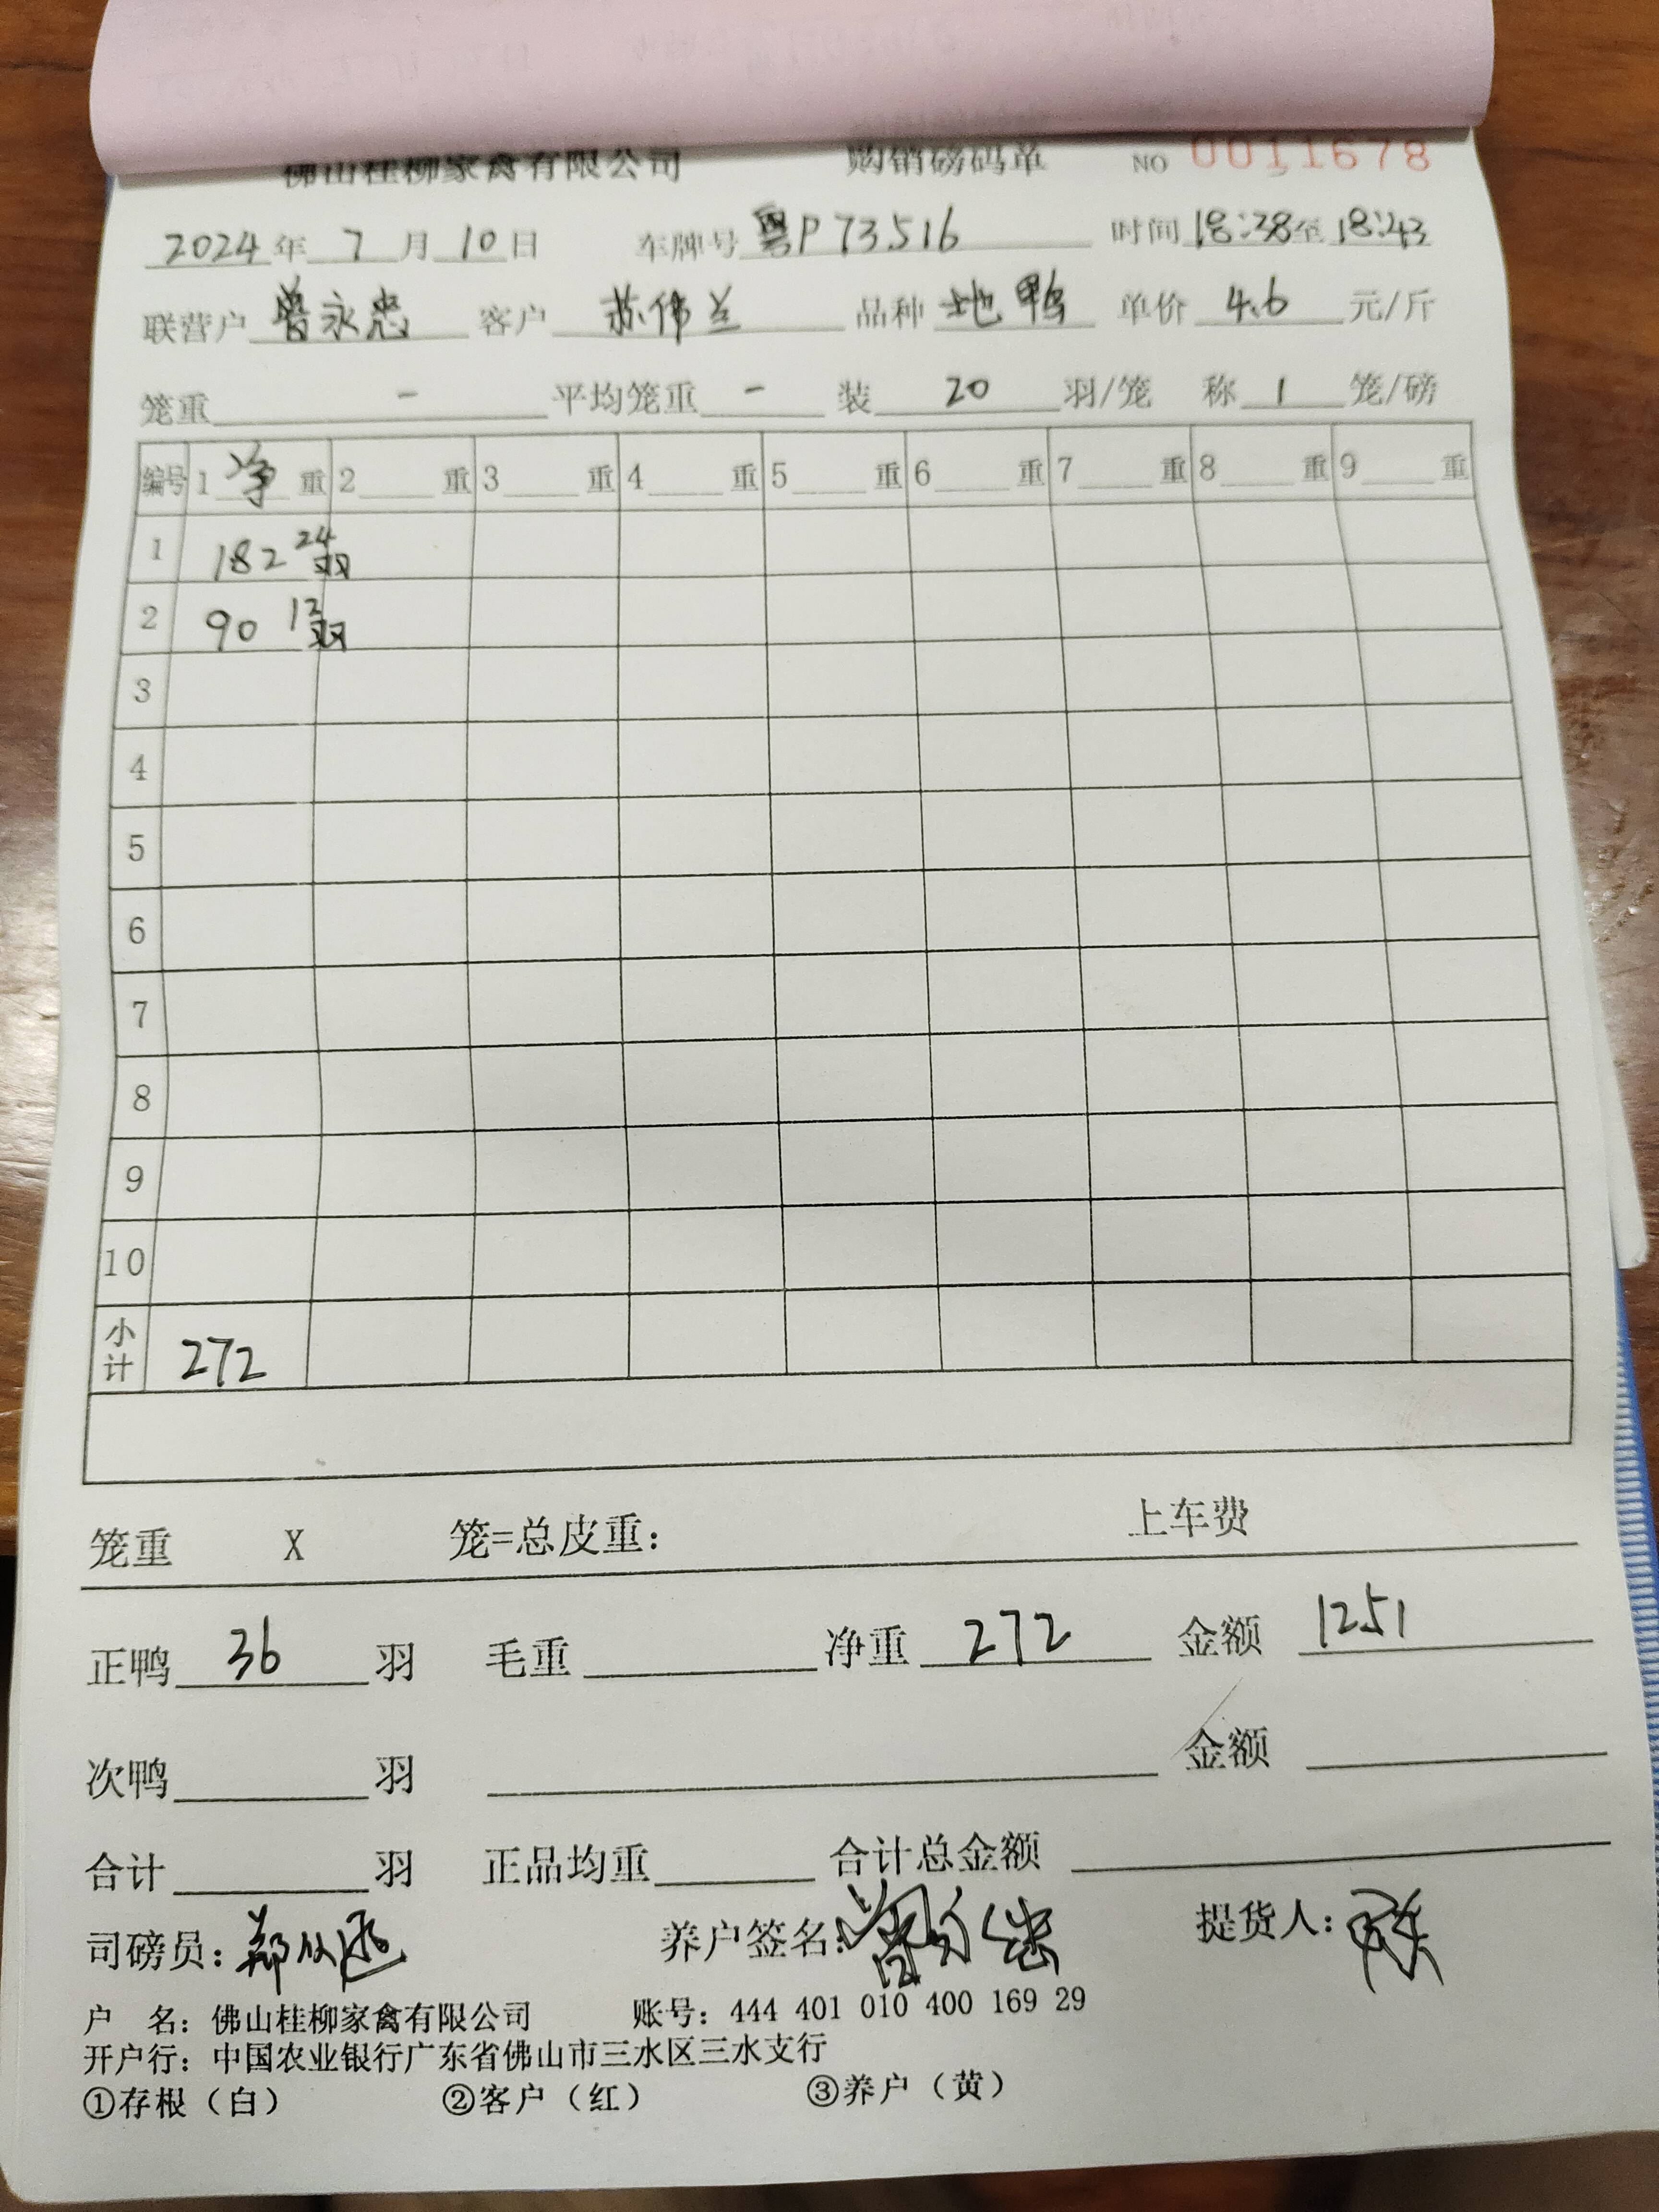 佛山桂柳家禽有限公司 购销磅码单 NO 0011678
2024年 7月 10日 车牌号 粤P73516 时间 18:38至18:43
联营户 曾永忠 客户 苏伟兰 品种 地鸭 单价 4.6 元/斤
笼重 - 平均笼重 - 装 20 羽/笼 称 1 笼/磅
编号 1 净 重 2 重 3 重 4 重 5 重 6 重 7 重 8 重 9 重
1 182 24羽
2 90 12羽
3
4
5
6
7
8
9
10
小计 272
笼重 X 笼=总皮重: 上车费
正鸭 36 羽 毛重 净重 272 金额 1251
次鸭 羽 金额
合计 羽 正品均重 合计总金额
司磅员: 养户签名: 提货人:
户 名: 佛山桂柳家禽有限公司 账号: 444 401 010 400 169 29
开户行: 中国农业银行广东省佛山市三水区三水支行
①存根（白） ②客户（红） ③养户（黄）